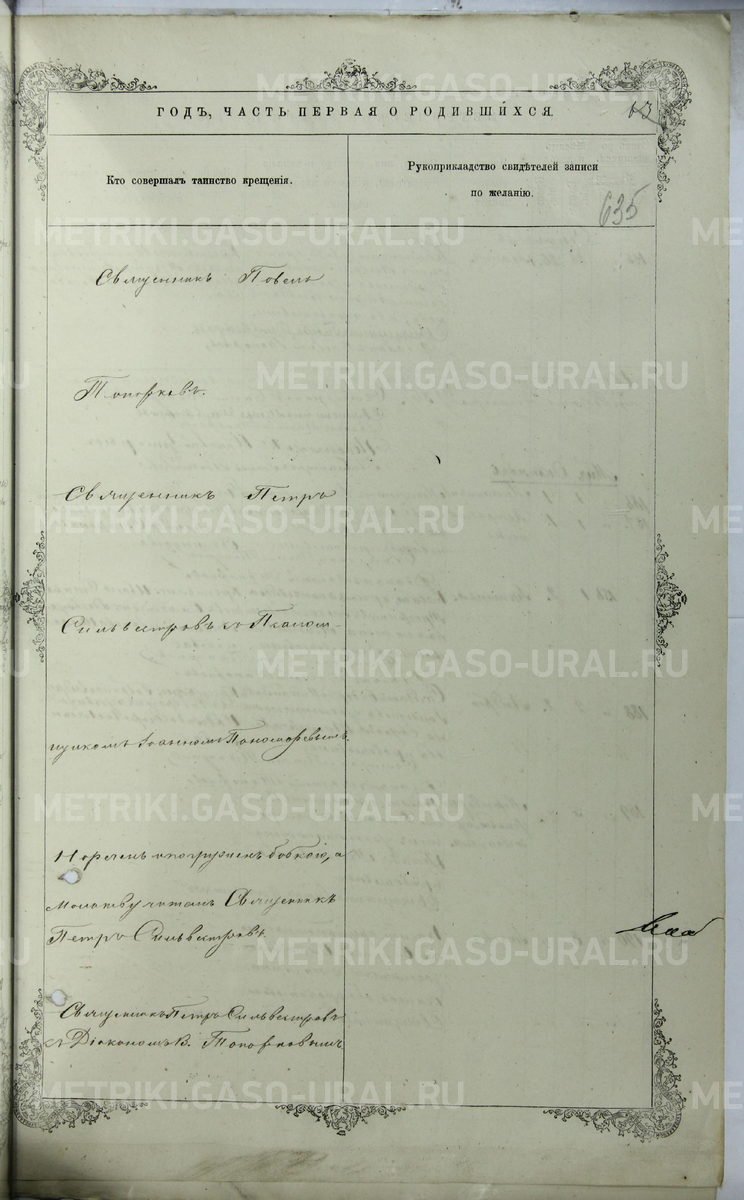 METRIKI.GASO-URAL.RU
ГОДЪ, ЧАСТЬ ПЕРВАЯ О РОДИВШИХСЯ.
13
Кто совершалъ таинство крещенія.
Рукоприкладство свидѣтелей записи
по желанію.
635
Священникъ Павелъ
Топорковъ.
Священникъ Петръ
Сильвестровъ съ Псалом-
щикомъ Іоанномъ Пономаревымъ.
Нареченъ и погруженъ бабкою, а
Молитву читалъ Священникъ
Петръ Сильвестровъ
Священникъ Петръ Сильвестровъ
съ Діакономъ В. Топорковымъ